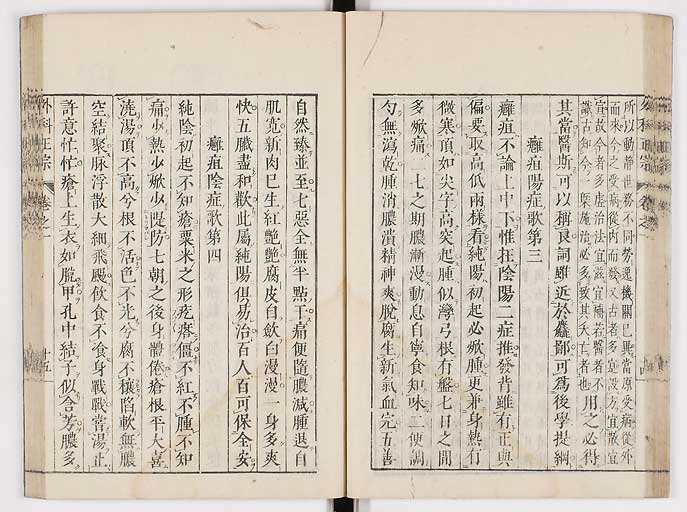 所以動靜世務不同勞逸機關已異當原受病從外
而來今之受病從内而發又古者多實設方宜散宜
宣故今者多虚治法宜滋宜補若醫者不
識古知今一槩施治必多致其夭亡者也用之必得
其當醫斯可以稱良詞雖近於麤鄙可爲後學提綱
癰疽陽症歌第三
癰疽不論上中下惟在陰陽二症推發背雖有正與
偏要取高低兩樣看純陽初起必焮腫更兼身熱有
微寒頂如尖字高突起腫似彎弓根有盤七日之間
多焮痛二七之期膿漸漫動息自寧食知味二便調
勻無瀉乾腫消膿潰精神爽脫腐生新氣血完五善
外科正宗 卷之一
自然臻並至七惡全無半點干痛便隨膿減腫退自
肌寬新肉已生紅艷艷腐皮自斂白漫漫一身多爽
快五臟盡和歡此屬純陽俱易治百人百可保全安
癰疽陰症歌第四
純陰初起不知瘡粟米之形疙瘩僵不紅不腫不知
痛少熱少焮少提防七朝之後身體倦瘡根平大喜
漉湯頂不高兮根不活色不光兮腐不穰陷軟無膿
空結聚脉浮散大細飛颺飲食不食身戰戰嘗湯止
許意忙忙瘡上生衣如脫甲孔中結子似含芳膿多
外科正宗 卷之一 十五